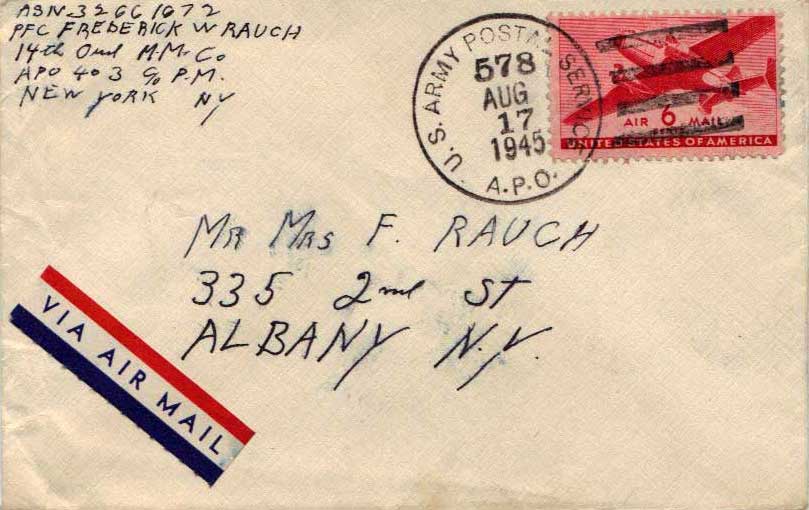 ASN 32661672
PFC FREDERICK W RAUCH
14th Ord M.M. Co
APO 403 % P.M.
NEW YORK NY
U.S. ARMY POSTAL SERVICE
578
AUG
17
1945
A.P.O.
AIR 6 MAIL
UNITED STATES OF AMERICA
MR MRS F. RAUCH
335 2nd St
ALBANY N.Y.
VIA AIR MAIL